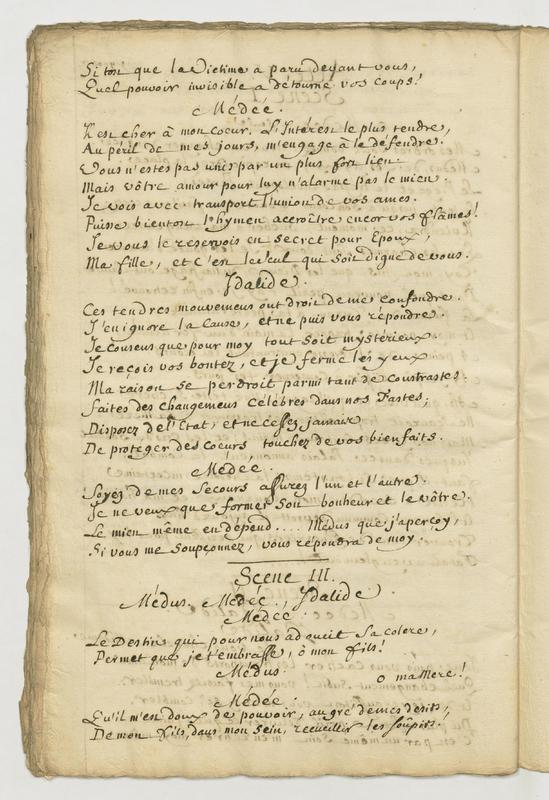 Si tost que la Victime a paru devant vous,
Quel pouvoir invisible a détourné vos coups!
Médée.
Il est cher à mon coeur. L'Intérest le plus tendre,
Au péril de mes jours, m'engage à le défendre.
Vous n'estes pas unis par un plus fort lien.
Mais vôtre amour pour luy n'alarme pas le mien.
Je vois avec transport l'union de vos ames.
Puisse bientost l'hymen accroître encor vos flâmes!
Je vous le reservois en secret pour Epoux,
Ma fille, et c'est le seul qui soit digne de vous.
Idalide.
Ces tendres mouvemens ont droit de me confondre.
J'en ignore la cause, et ne puis vous répondre.
Je consens que pour moy tout soit mystérieux.
Je reçois vos bontez, et je ferme les yeux.
Ma raison se perdroit parmi tant de contrastes.
Faites des changemens célébres dans nos Fastes;
Disposez de l'Etat, et ne cessez jamais
De protéger des coeurs touchez de vos bienfaits.
Médée.
Soyez de mes secours assurez l'un et l'autre.
Je ne veux que former son bonheur et le vôtre.
Le mien même en dépend.... Médus que j'aperçoy,
Si vous me soupçonnez, vous répondra de moy.
Scene III.
Médus, Médée, Idalide.
Médée.
Le Destin qui pour nous adoucit sa colere,
Permet que je t'embrasse, ô mon fils!
Médus.
o ma Mere!
Médée.
Qu'il m'est doux de pouvoir, au gré de mes désirs,
De mon fils, dans mon sein, recueillir les soûpirs!